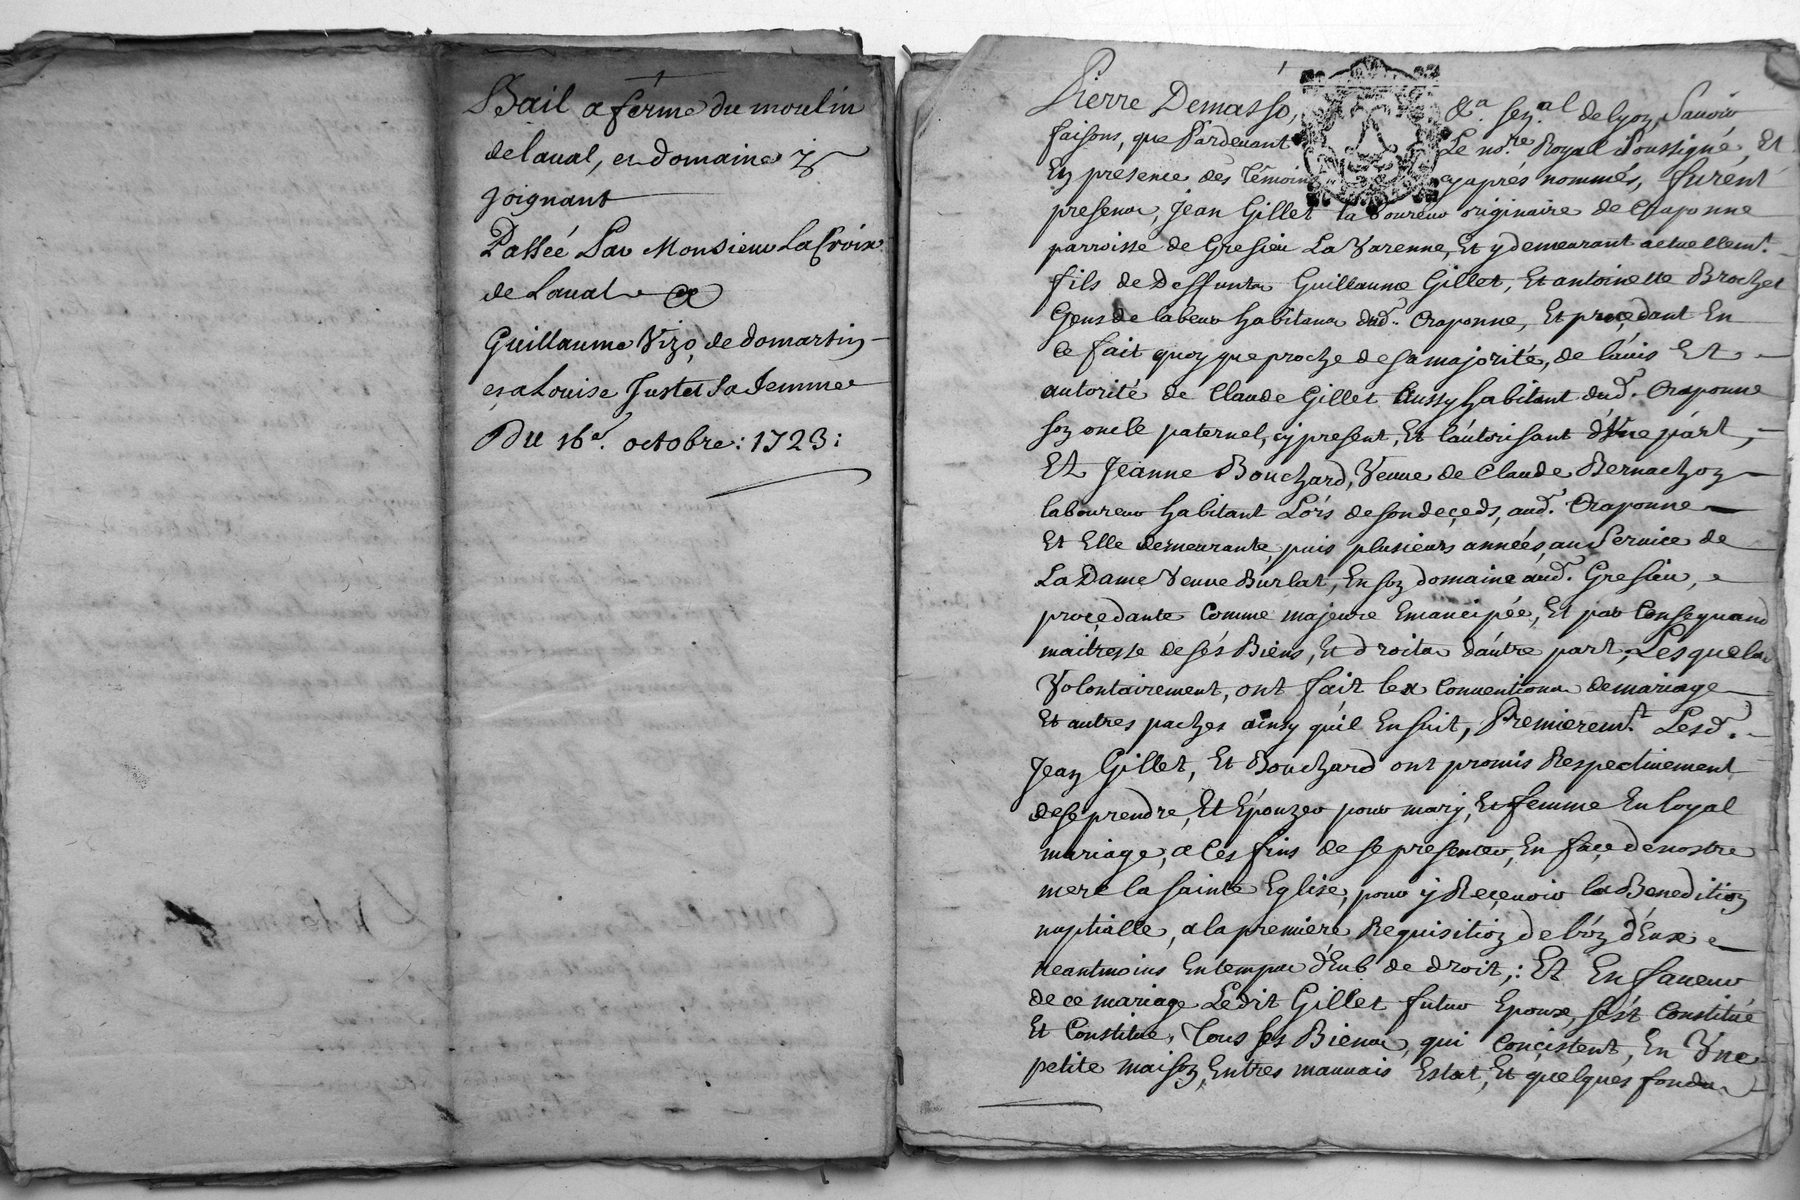 Bail a ferme du moulin
de laual, et domaine y
joignant
Passéé Par Monsieur LaCroix
de Laual a
Guillaume Vizo, de domartin
et a Louise Justet Sa femme
Du 16e. octobre: 1723:
Pierre Demasso, &a. sen.al de lyon, Sauoir
faisons, que Pardeuant Le no.re Royal Soussigné, Et
En presence des Témoins cyaprés nommés, furent
presens, Jean Gillet laboureur originaire de Craponne
parroisse de Gresieu La Varenne, Et y demeurant actuellem.t
fils de Deffunts Guillaume Gillet, Et antoinette Brochet
Gens de labeur habitans dud. Craponne, Et proçedant En
Ce fait quoy que proche de sa majorité, de l'áuis Et
autorité de Claude Gillet Aussy habitant dud. Craponne
son oncle paternel, cy present, Et l'áutorisant d'Vne párt,
Et Jeanne Bouchard, Veuue de Claude Bernachon
laboureur habitant Lórs de son deçeds, aud. Craponne
Et Elle demeurante, puis plusieurs années, au Seruice de
La Dame Veuue Burlat, En son domaine aud. Gresieu,
proçedante Comme majeure Emancipée, Et par Consequand
maitresse de sés Biens, Et droits d'áutre part, Lesquels
Volontairement, ont fait les Conuentions de mariage
Et autres paches ainsy qu'il Ensuit, Premierem.t Lesd.
Jean Gillet, Et Bouchard ont promis Respectiuement
de se prendre, Et Épouzer pour mary, Et femme En loyal
mariage, a Ces fins de se presenter, En façe de nostre
mere la sainte Eglise, pour ÿ Reçeuoir la Benedition
nuptialle, a la premiére Requisition de l'ún d'Eux
neantmoins En temps d'Eub de droit,: Et En faueur
de ce mariage Ledit Gillet futur Epoux, s'ést Constitué
Et Constitue, Tous ses Biens, qui Conçistent, En Vne
petite maison, En tres mauuais Estat, Et quelques fonds